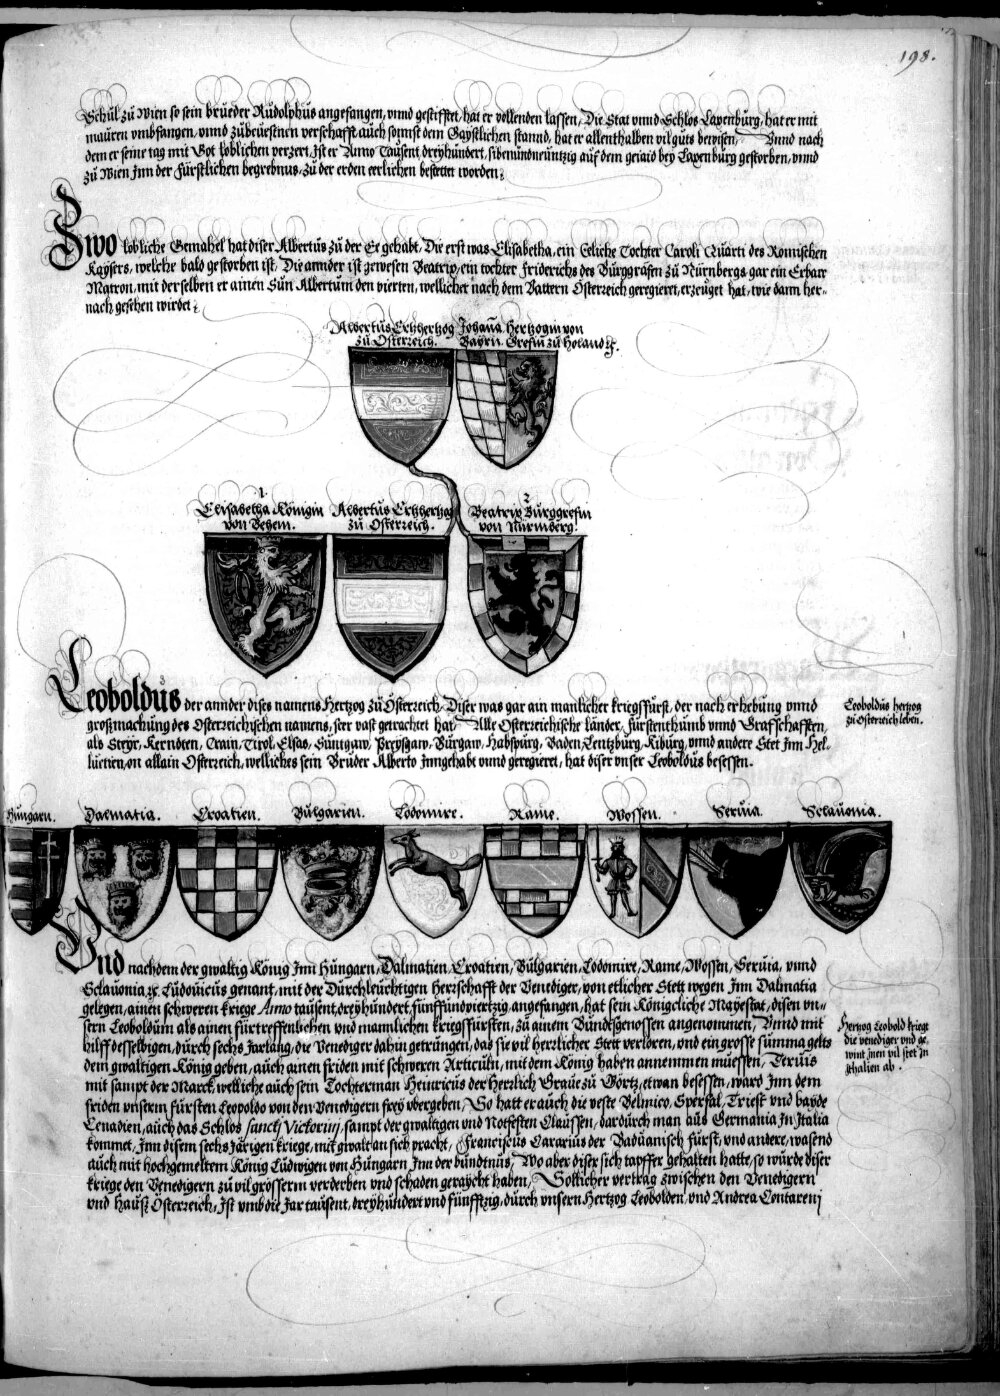 198.
Schul zu Wien so sein brueder Rudolphus angefangen, vnnd gestifftet, hat er vollenden lassen, Die Stat vnnd Schlos Laxenburg, hat er mit
mauren vmbfangen, vnnd zubeuestnen verschafft auch sonnst dem Gaystlichen stannd, hat er allenthalben vil guts bewisen, Vnnd nach
dem er seine tag mit Got loblichen verzert, Ist er Anno Tausent, dreyhundert, sibenundneuntzig auf dem geiaid bey Laxenburg gestorben, vnnd
zu Wien Inn der Fürstlichen begrebnus, zu der erden eerlichen bestettet worden.
Zwo lobliche Gemahel hat diser Albertus zu der Ee gehabt, Die erst was Elisabetha, ein Eeliche Tochter Caroli Quarti des Romischen
Kaysers, welche bald gestorben ist, Die annder ist gewesen Beatrix, ein tochter Friderichs des Burggrafen zu Nürnbergs gar ein Erbare
Matron, mit derselben er ainen Sun Albertum den vierten, wellicher nach dem Vattern Osterreich geregieret, erzeuget hat, wie dann her-
nach gesehen wirdet.
Albertus Ertzhertzog zu Osterreich.
Johana Hertzogin von Bayrn Grefin zu Holand
1.
Elisabetha Königin von Behem.
Albertus Ertzhertzog zu Osterreich.
2
Beatrix Burggrefin von Nürmberg.
3
Leoboldus der annder dises namens Hertzog zu Osterreich, Diser was gar ain manlicher kriegsfürst, der nach erhebung vnnd
großmachung des Osterreichischen namens, seer vast getrachtet hat, Alle Osterreichische länder, fürstenthumb vnnd Grafschafften,
als Steyr, Kerndten, Crain, Tirol, Elsas, Suntgaw, Preysgaw, Burgaw, Habspurg, Baden, Lentzburg, Kiburg, vnnd andere Stet Inn Hel-
uetien, on allain Osterreich, welliches sein Bruder Alberto Inngehabt vnnd geregieret, hat diser vnser Leoboldus besessen.
Leoboldus hertzog
zu Osterreich leben.
Hungarn. Dalmatia. Croatien. Bulgarien. Lodomire. Rame. Wossen. Seruia. Sclauonia.
Vnd nachdem der gwaltig König Inn Hungarn, Dalmatien, Croatien, Bulgarien, Lodomire, Rame, Wossen, Seruia, vnnd
Sclauonia, Ludouicus genant, mit der Durchleuchtigen Herrschafft der Venediger, von etlicher Stett wegen Inn Dalmatia
gelegen, ainen schweren kriege Anno tausent, dreyhundert, fünffundviertzig, angefangen, hat sein Königcliche Mayestat, disen vn-
sern Leoboldum als ainen fürtreffenlichen vnd mannlichen kriegsfürsten, zu ainem Bundtsgenossen angenommen, Vnnd mit
hilff desselbigen, durch sechs Jarlang, die Venediger dahin getrungen, das sie vil herrlicher Stett verloren, vnd ein grosse summa gelts
dem gwaltigen König geben, auch ainen friden mit schweren Articuln, mit dem König haben annemmen müessen, Teruis
mit sampt der Marck, welliche auch sein Tochterman Heinricus der Herrlich Graue zu Görtz, etwan besessen, ward Inn dem
friden vnserm fürsten Leopoldo von den Venedigern frey vbergeben, So hatt er auch die veste Belmico, Spersal, Triest vnd bayde
Cenadien, auch das Schlos sancti Victorin, sampt der gwaltigen vnd Notfesten Claussen, dardurch man aus Germania In Italia
kommet, Inn disem sechs Järigen kriege, mit gwalt an sich pracht, Franciscus Cararius der Baduanisch fürst, vnd andere, wasend
auch mit hochgemeltem König Ludwigen von Hungarn Inn der bundtnus, Wo aber diser sich tapffer gehalten hatte, so würde diser
kriege den Venedigern zu vil grösserm verderben vnd schaden geraycht haben, Sollicher vertrag zwischen den Venedigern
vnd Hauss Osterreich, Ist vmb die Jar tausent, dreyhundert vnd fünfftzig, durch vnsern Hertzog Leobolden, vnd Andrea Contarenij
Hertzog Leobold kriegt
die venediger vnd ge,
wint Inen vil stet In
Ithalien ab.